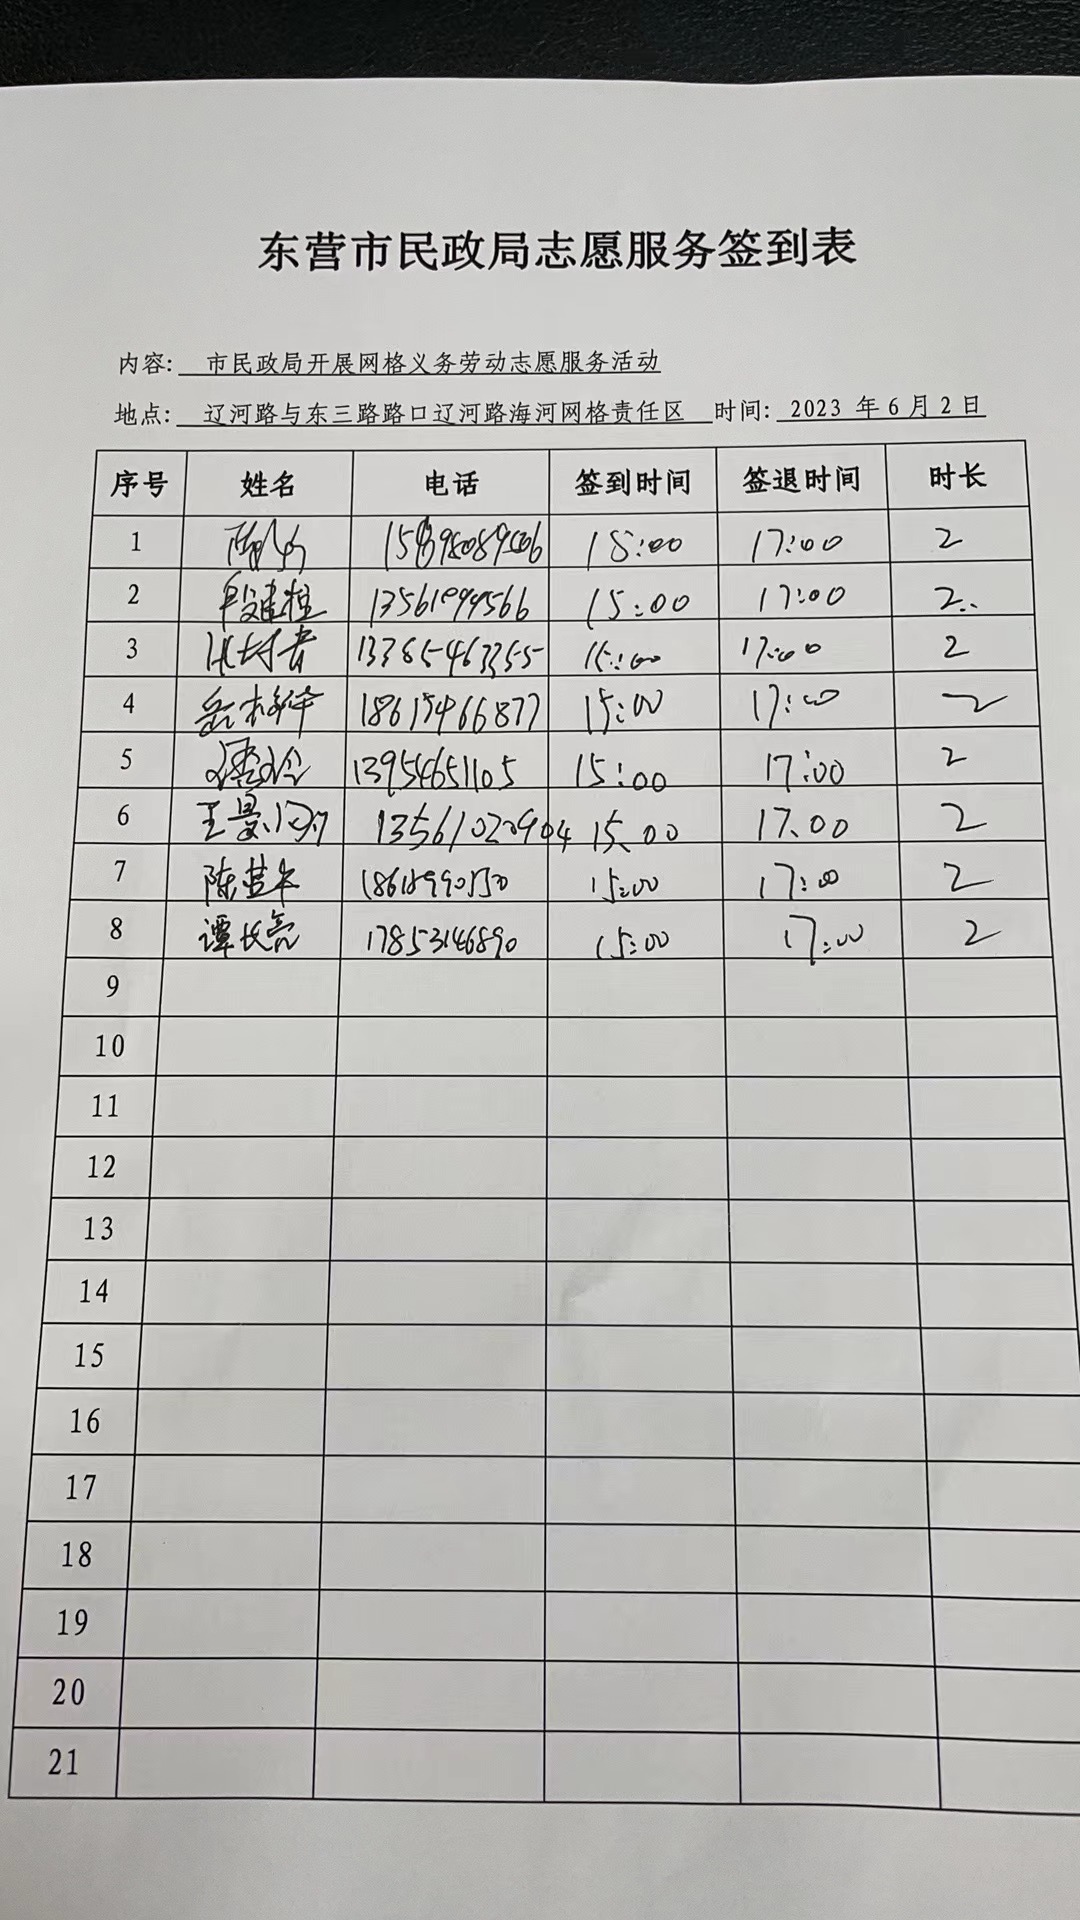 东营市民政局志愿服务签到表
内容: 市民政局开展网格义务劳动志愿服务活动
地点: 辽河路与东三路路口辽河路海河网格责任区 时间: 2023 年6月2日
序号 姓名 电话 签到时间 签退时间 时长
1 15:00 17:00 2
2 段建柱 15:00 17:00 2
3 13385463355 15:00 17:00 2
4 18615466877 15:00 17:00 2
5 13954651105 15:00 17:00 2
6 13561020904 15:00 17:00 2
7 陈营年 15:00 17:00 2
8 谭长亮 17853146890 15:00 17:00 2
9
10
11
12
13
14
15
16
17
18
19
20
21